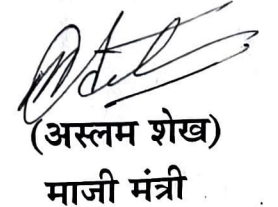 (अस्लम शेख)
माजी मंत्री